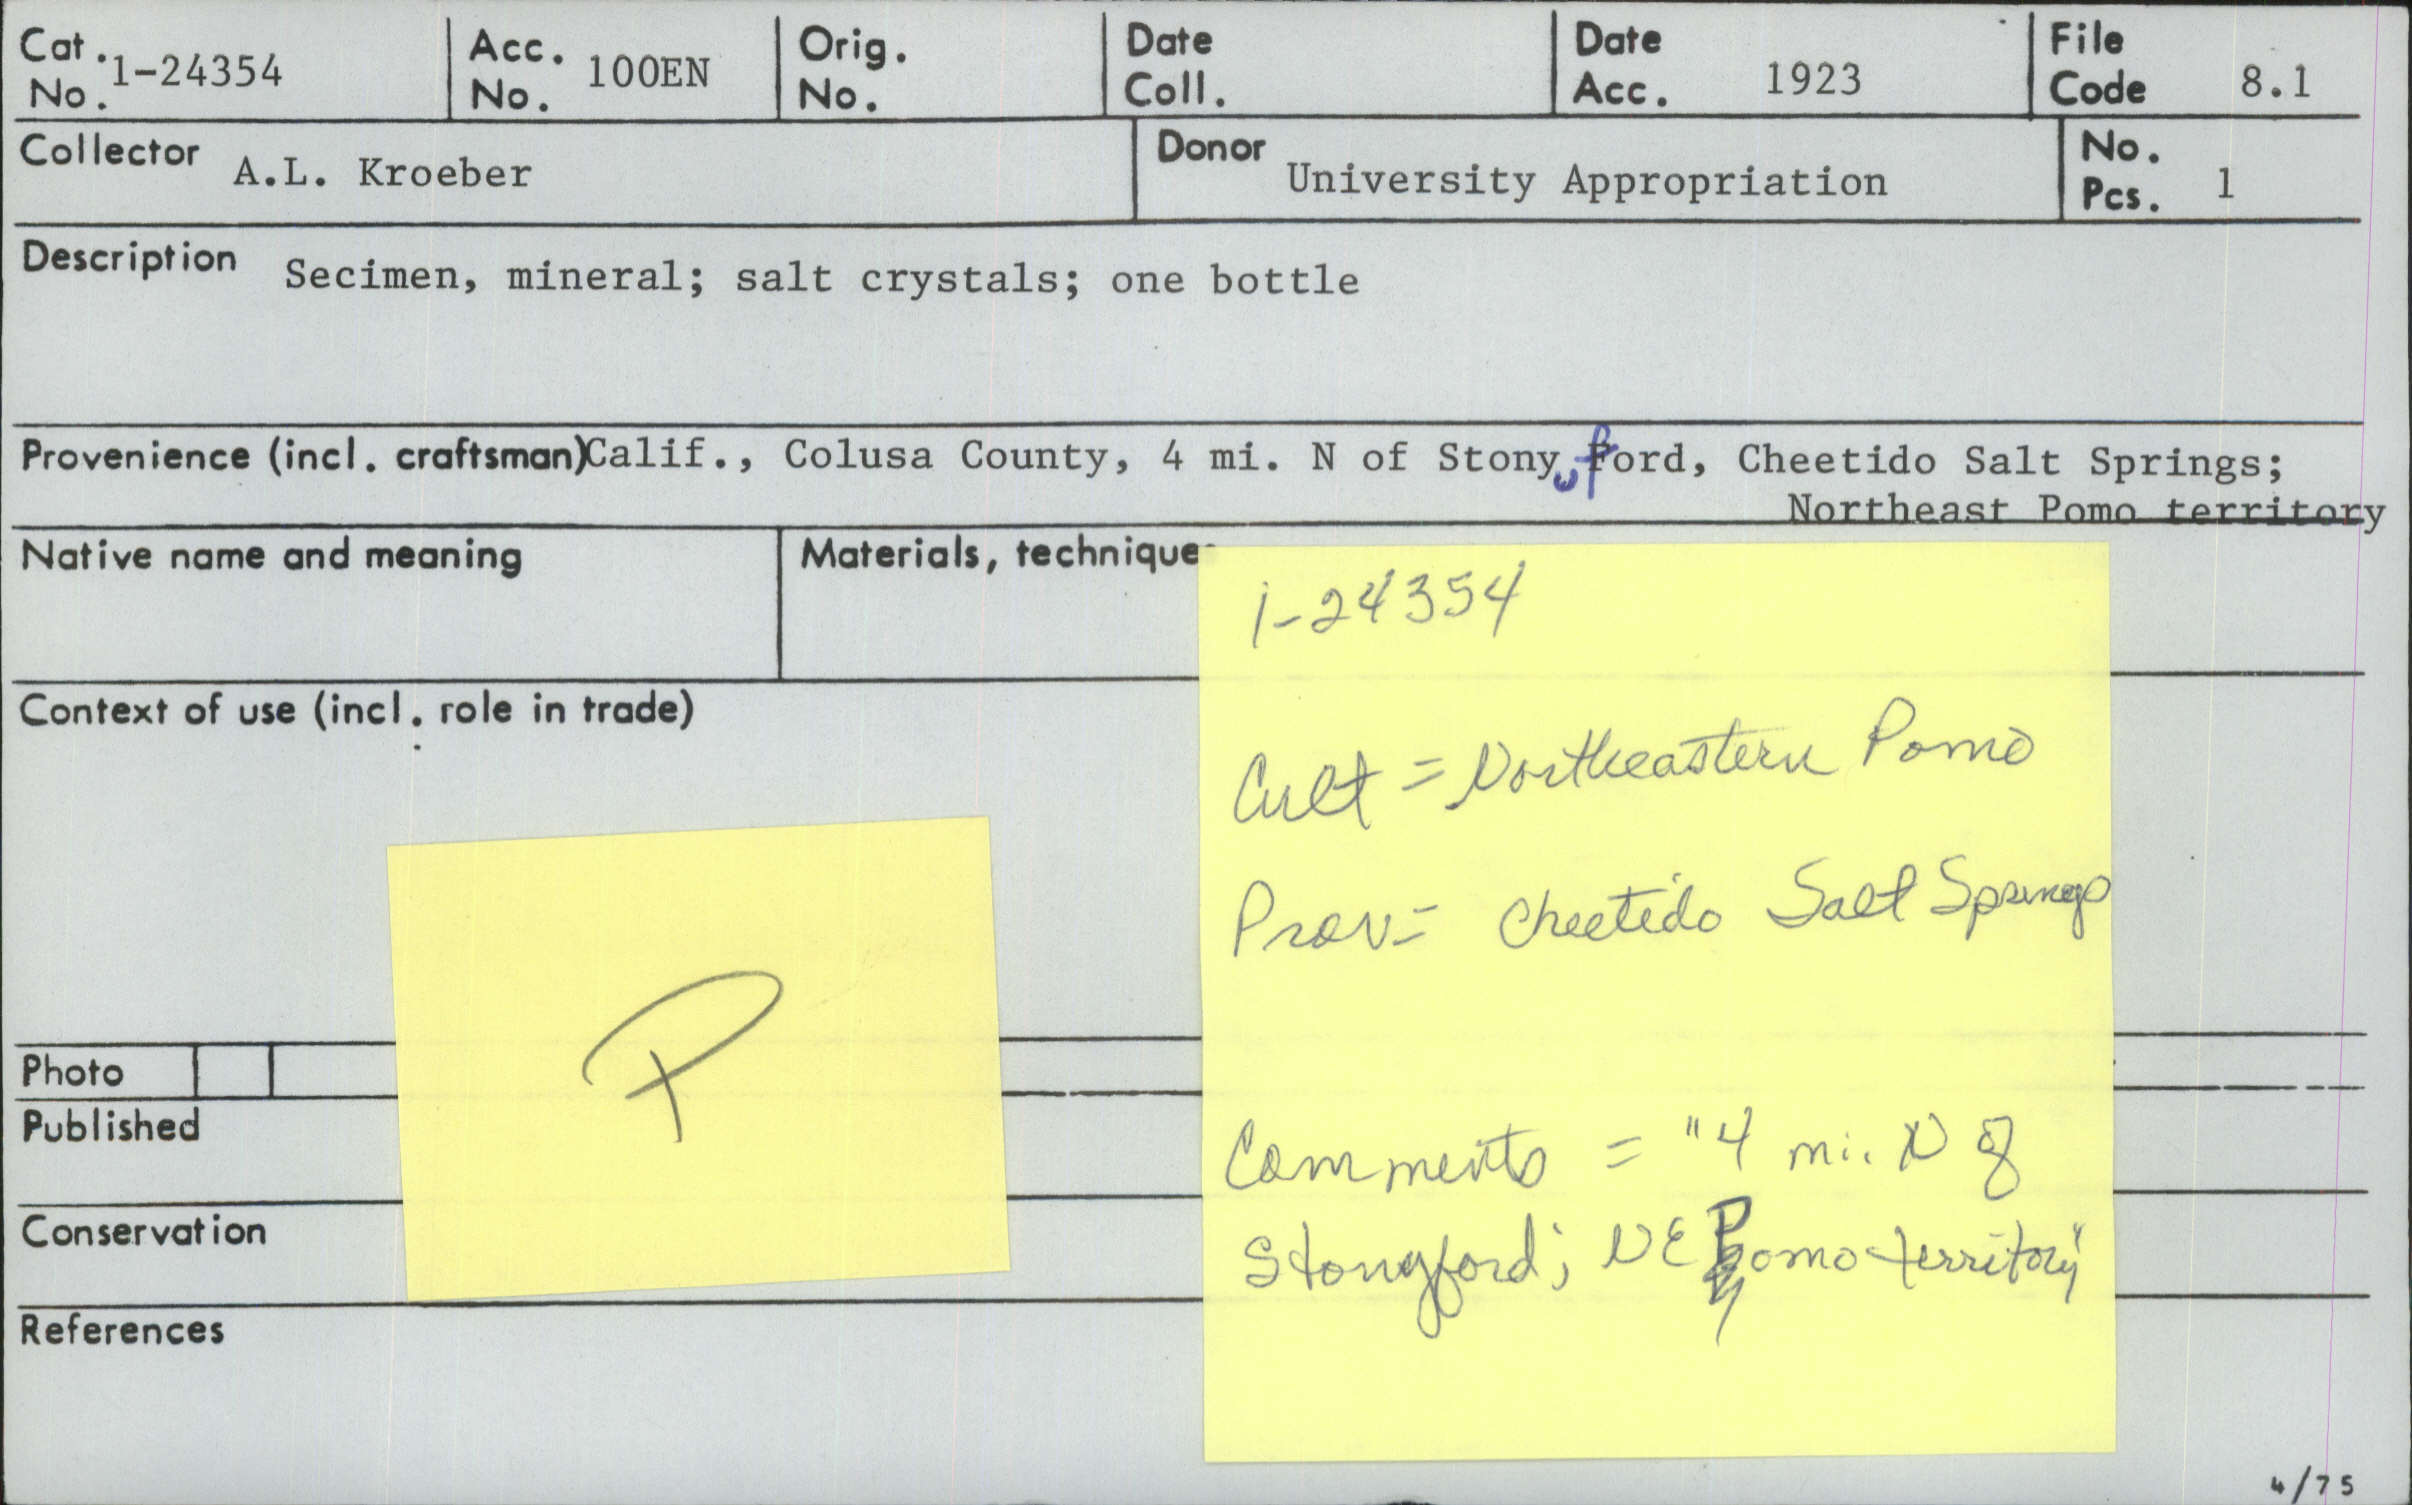 Cat. No. 1-24354
Acc. No. 100EN
Orig. No.
Date Coll.
Date Acc. 1923
File Code 8.1
Collector A.L. Kroeber
Donor University Appropriation
No. Pcs. 1
Description Secimen, mineral; salt crystals; one bottle
Provenience (incl. craftsman) Calif., Colusa County, 4 mi. N of Stonyford, Cheetido Salt Springs;
Northeast Pomo territory
Native name and meaning
Materials, technique
Context of use (incl. role in trade)
Photo
Published
Conservation
References
P
1-24354
Cult = Northeastern Pomo
Prov = Cheetido Salt Springs
Comments = "4 mi. N of
Stonyford; NE Pomo territory"
4/75